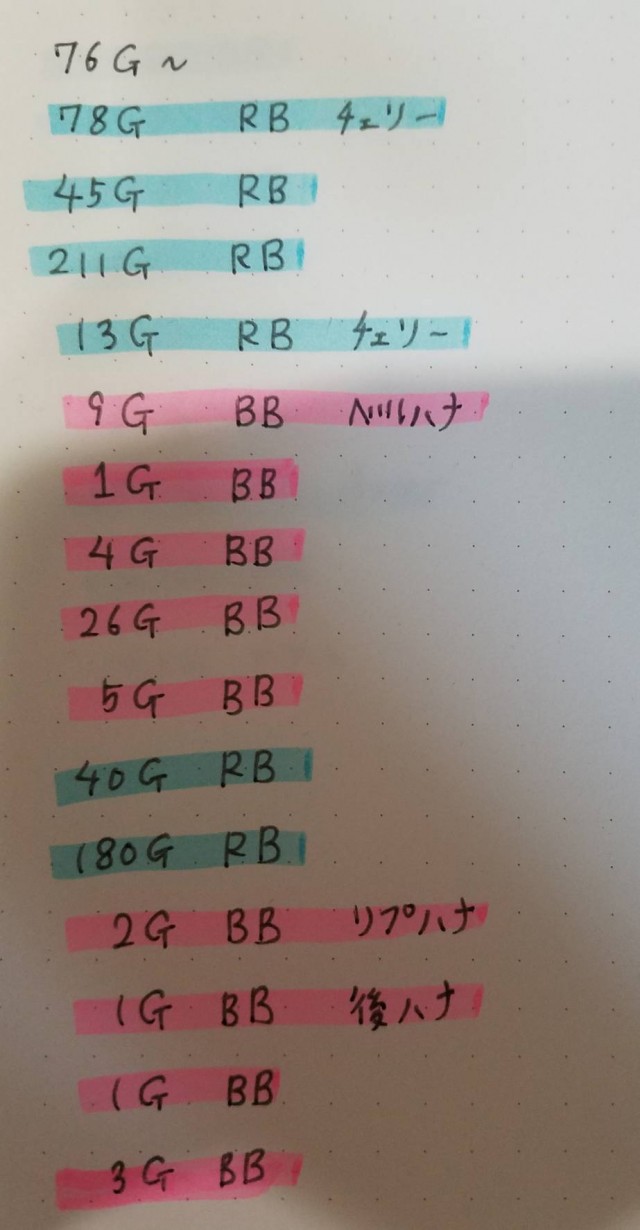 76G~
78G RB チェリー
45G RB
211G RB
13G RB チェリー
9G BB ベルハナ
1G BB
4G BB
26G BB
5G BB
40G RB
180G RB
2G BB リプハナ
1G BB 後ハナ
1G BB
3G BB